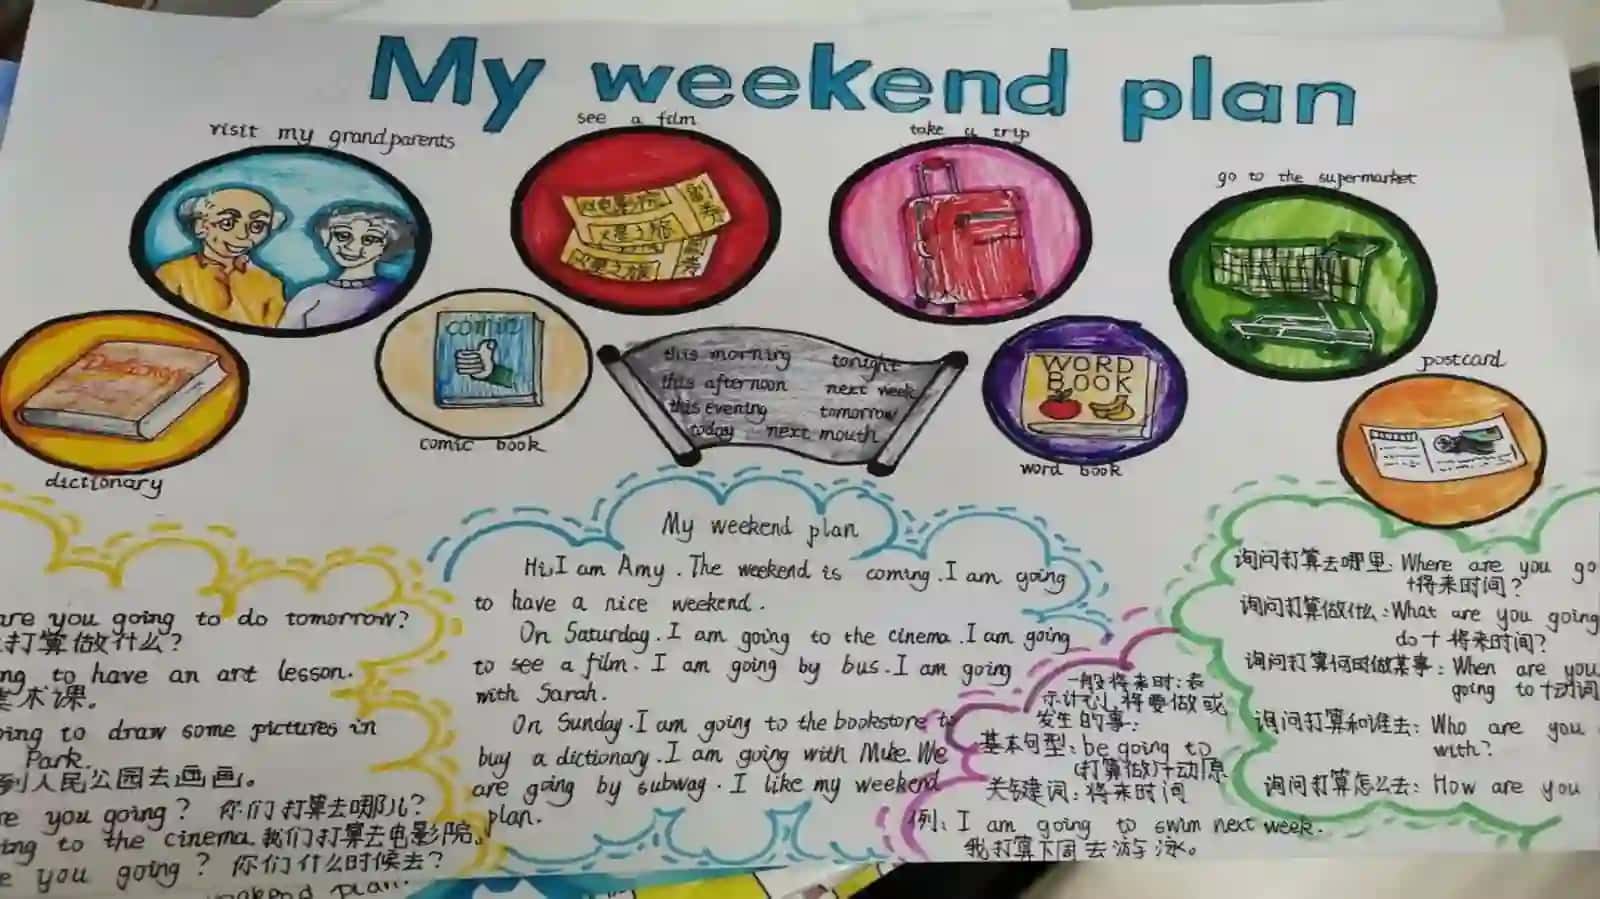 My weekend plan
visit my grandparents
see a film
take a trip
go to the supermarket
Dictionary
dictionary
comic
comic book
this morning tonight
this afternoon next week
this evening tomorrow
today next mouth
WORD
BOOK
word book
postcard
are you going to do tomorrow?
打算做什么?
ng to have an art lesson.
美术课。
oing to draw some pictures in
Park.
到人民公园去画画。
re you going? 你们打算去哪儿?
ing to the cinema.我们打算去电影院。
e you going? 你们什么时候去?
weekend plan.
My weekend plan
Hi,I am Amy.The weekend is coming.I am going
to have a nice weekend.
On Saturday.I am going to the cinema.I am going
to see a film.I am going by bus.I am going
with Sarah.
On Sunday.I am going to the bookstore to
buy a dictionary.I am going with Mike.We
are going by subway.I like my weekend
plan.
一般将来时:表
示计划,将要做或
发生的事.
基本句型:be going to
(打算做)+动原
关键词:将来时间
例:I am going to swim next week.
我打算下周去游泳。
询问打算去哪里:Where are you go
+将来时间?
询问打算做什么:What are you going
do+将来时间?
询问打算何时做某事:When are you
going to+动词
询问打算和谁去:Who are you
with?
询问打算怎么去:How are you